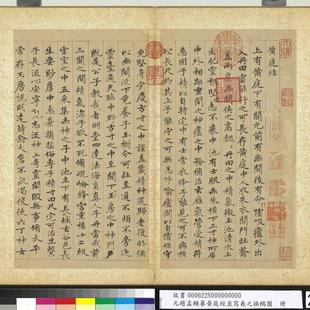 黃庭經
上有黃庭下有關元前有幽闕後有命門噓吸廬外出
入丹田審能行之可長存黃庭中人衣朱衣關門壯籥
蓋兩扉幽闕俠之高魏丹田之中精氣微玉池清水上
生肥靈根堅志不衰中池有士服赤朱橫下三寸神所居
中外相距重閉之神廬之中務脩治玄膺氣管受精符
急固子精以自持宅中有士常衣絳子能見之可不病橫
理長尺約其上子能守之可無恙呼噏廬間以自償保守
完堅身受慶方寸之中謹蓋藏精神還歸老復壯俠
以幽闕流下竟養子玉樹令可壯至道不煩不旁迕
靈臺通天臨中野方寸之中至關下玉房之中神門戶
既是公子教我者明堂四達法海員真人子丹當我前
三關之間精氣深子欲不死脩崑崙絳宮重樓十二級
宮室之中五采集赤神之子中池立下有長城玄谷邑長
生要眇房中急棄捐搖俗專子精寸田尺宅可治生繫
子長流心安寧觀志流神三奇靈閒暇無事脩太平
常存玉房視明達時念大倉不飢渴役使六丁神女
故書000622N000000000
元趙孟頫摹黃庭經並寫羲之換鵝圖 冊